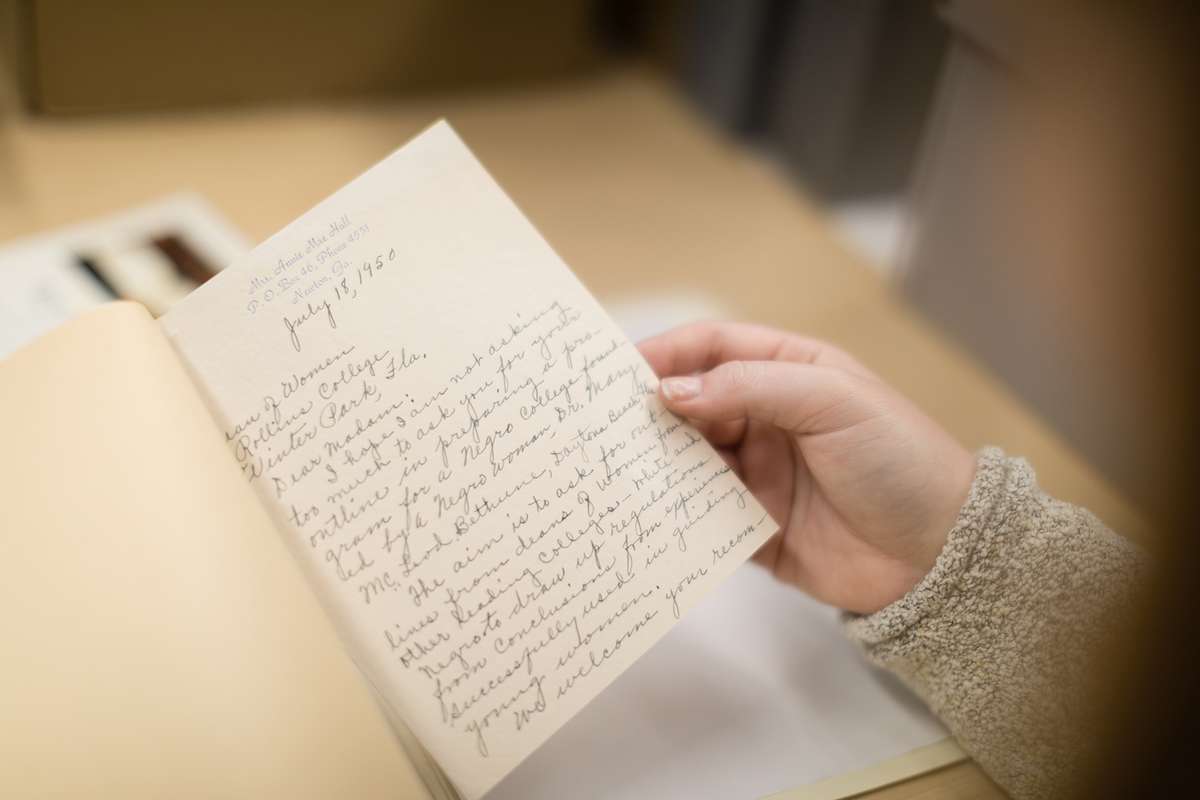 Mrs. Annie Mae Hall
P. O. Box 46, Phone
Newton, Ga.
July 18, 1950
ean of Women
Rollins College
Winter Park, Fla.
Dear Madam:
I hope I am not asking
too much to ask you for your
outline in preparing a pro-
gram for a Negro College found-
ed by a Negro woman, Dr. Mary
Mc.Leod Bethune, Daytona Beach,
The aim is to ask for out-
lines from deans of women from
other leading colleges - White and
Negro to draw up regulations
from conclusions from experience
successfully used in guiding
young women.
We welcome your recom-